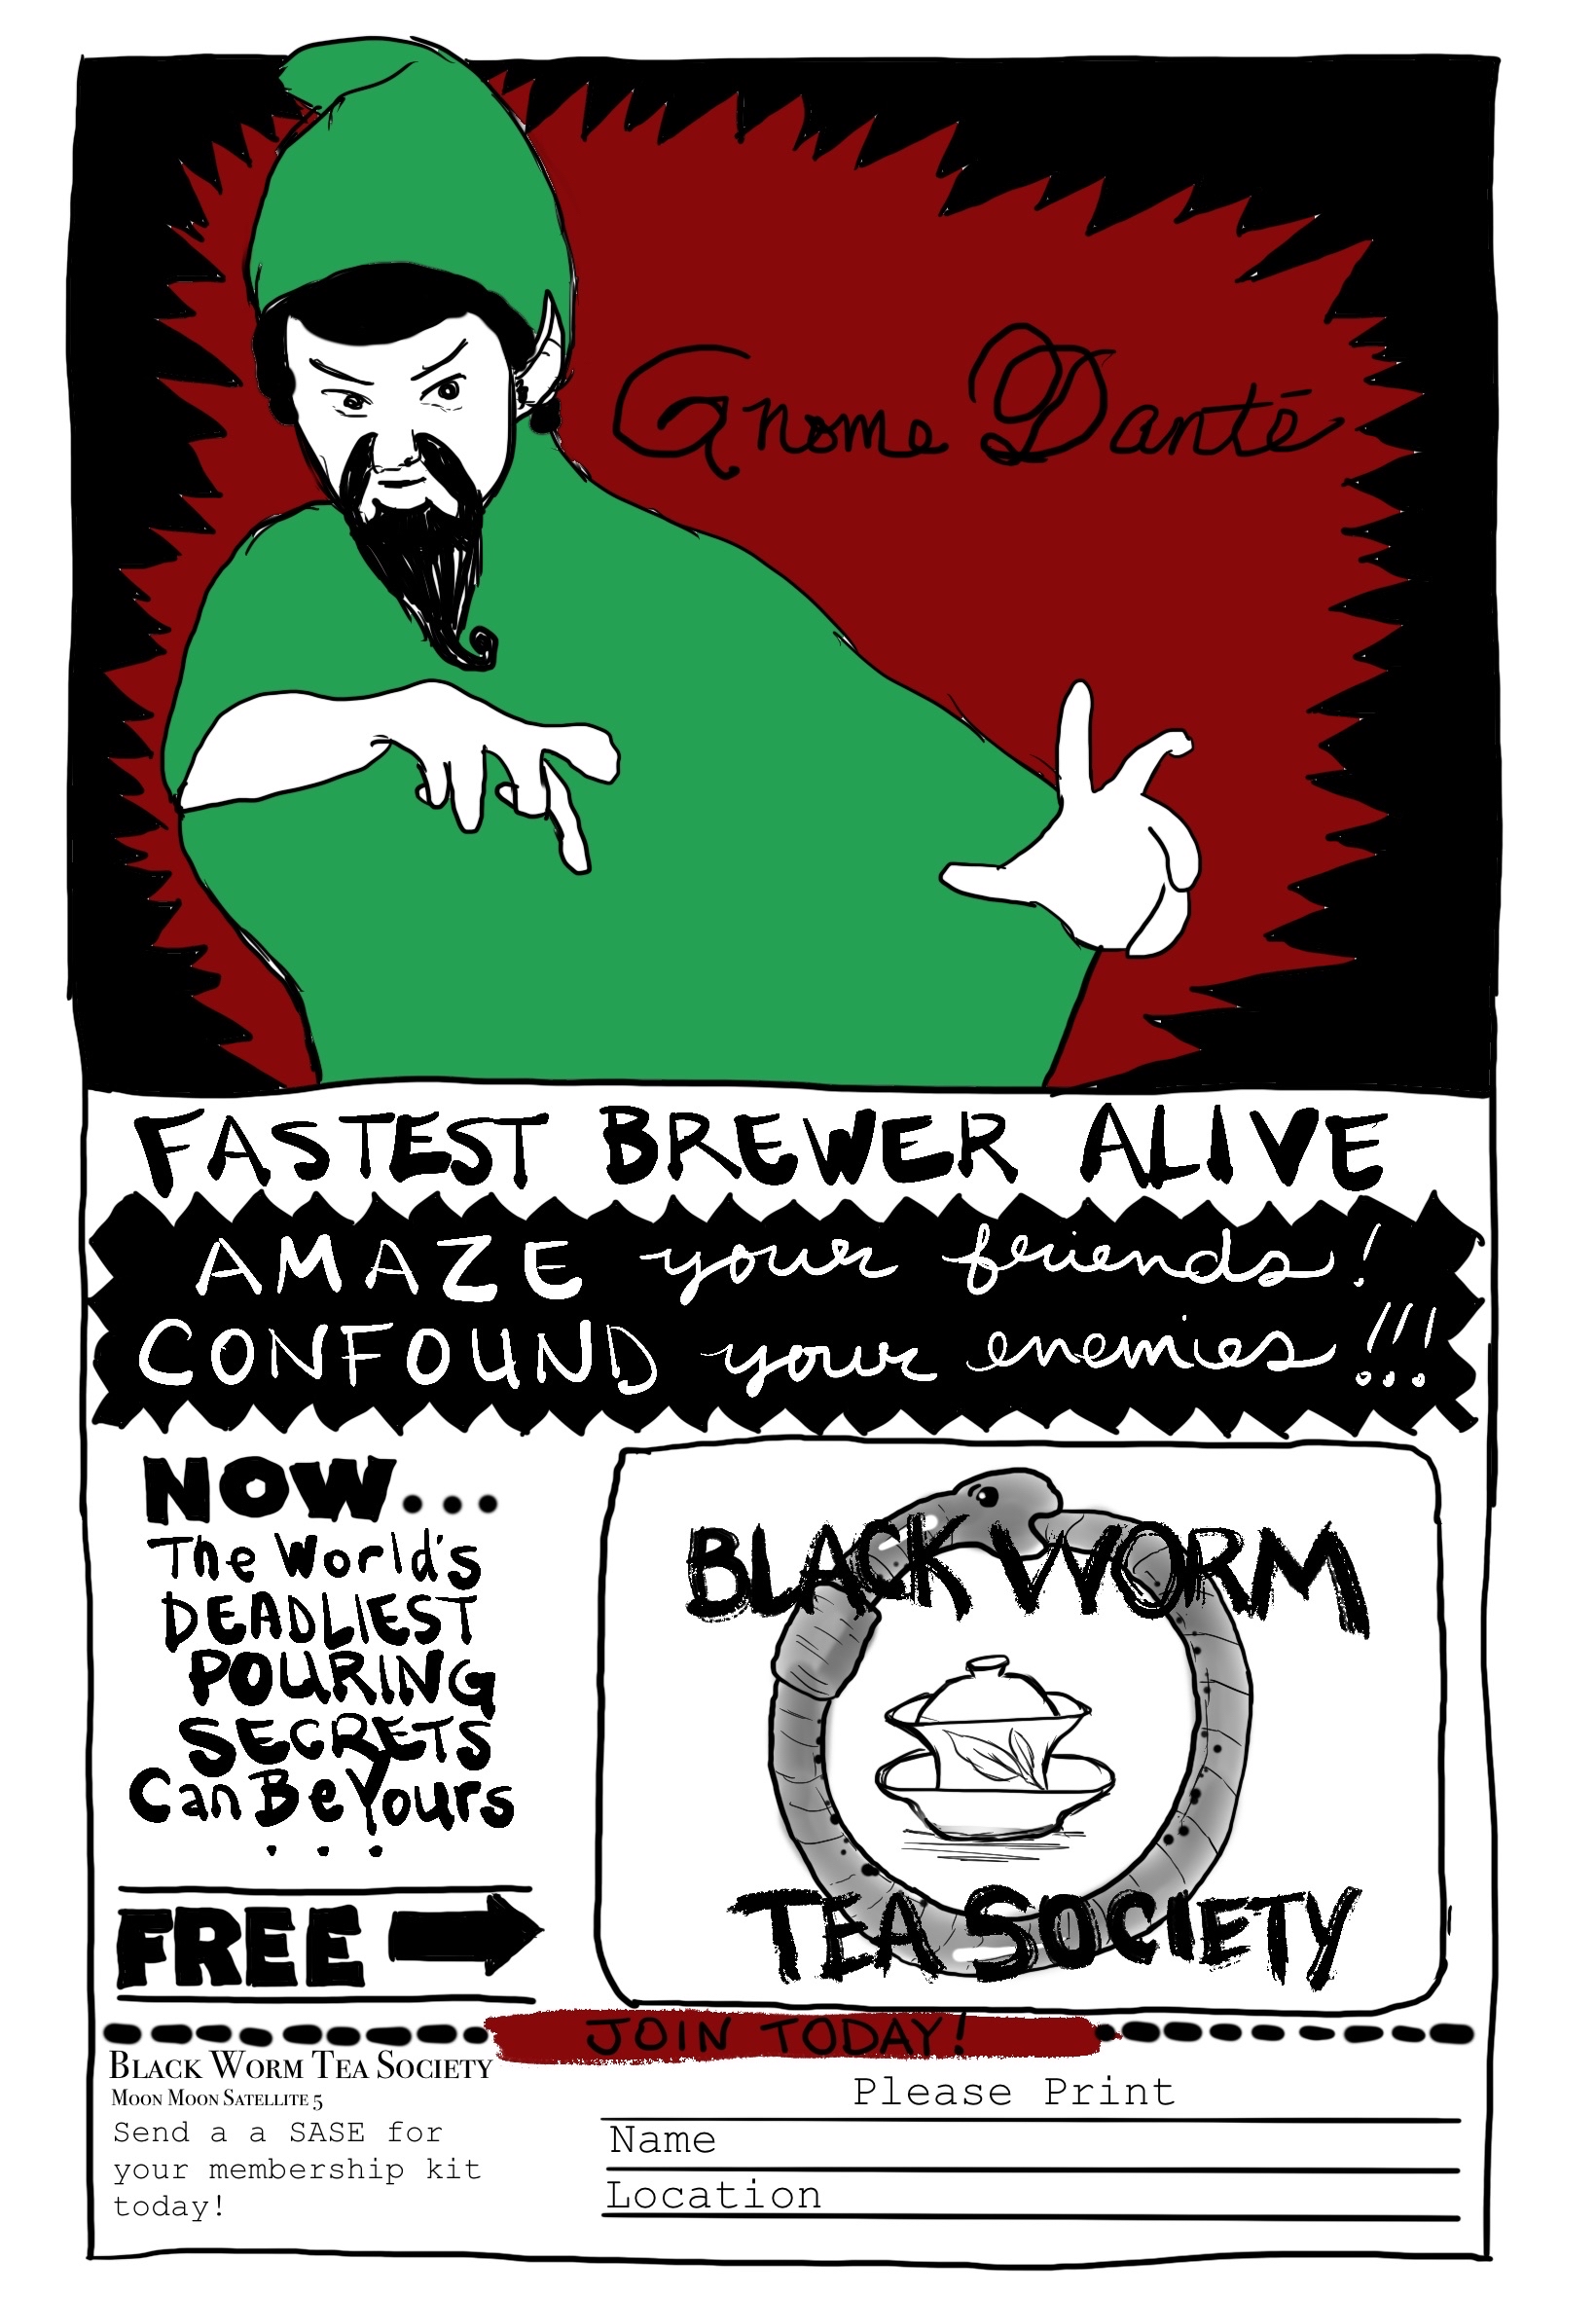 Gnome Danté
FASTEST BREWER ALIVE
AMAZE your friends!
CONFOUND your enemies!!!
NOW...
The World's
DEADLIEST
POURING
SECRETS
Can Be Yours
...
FREE
BLACK WORM
TEA SOCIETY
JOIN TODAY!
Black Worm Tea Society
Moon Moon Satellite 5
Send a a SASE for
your membership kit
today!
Please Print
Name
Location